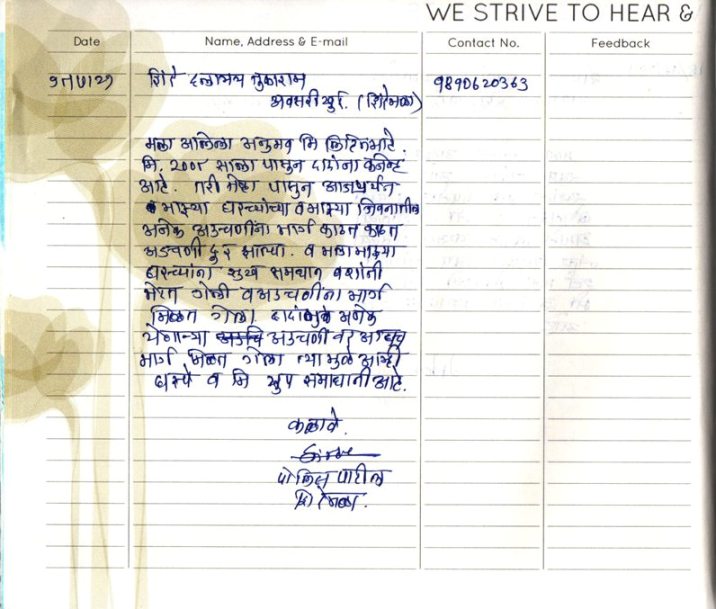 WE STRIVE TO HEAR &
Date Name, Address & E-mail Contact No. Feedback
शिंदे दत्तात्रय तुकाराम 9890620363
अवसरी खुर्द. (शिंदेमळा)
मला आलेला अनुभव मि लिहित आहे.
मि. 2005 साला पासुन दादांना कनेक्ट
आहे. तरी तेव्हा पासुन आजपर्यंत
माझ्या घरच्यांच्या व माझ्या जिवनातील
अनेक अडचणींना मार्ग काढत काढत
अडचणी दुर झाल्या. व मला माझ्या
घरच्यांना सुख समाधान व शांती
मिळत गेली व अडचणींना मार्ग
मिळत गेला. दादांमुळे अनेक
येणाऱ्या अडचणी वर
मार्ग मिळत गेला त्या मुळे आम्ही
घरचे व मि खुप समाधानी आहे.
कळावे.
पोलिस पाटील
शिंदेमळा.